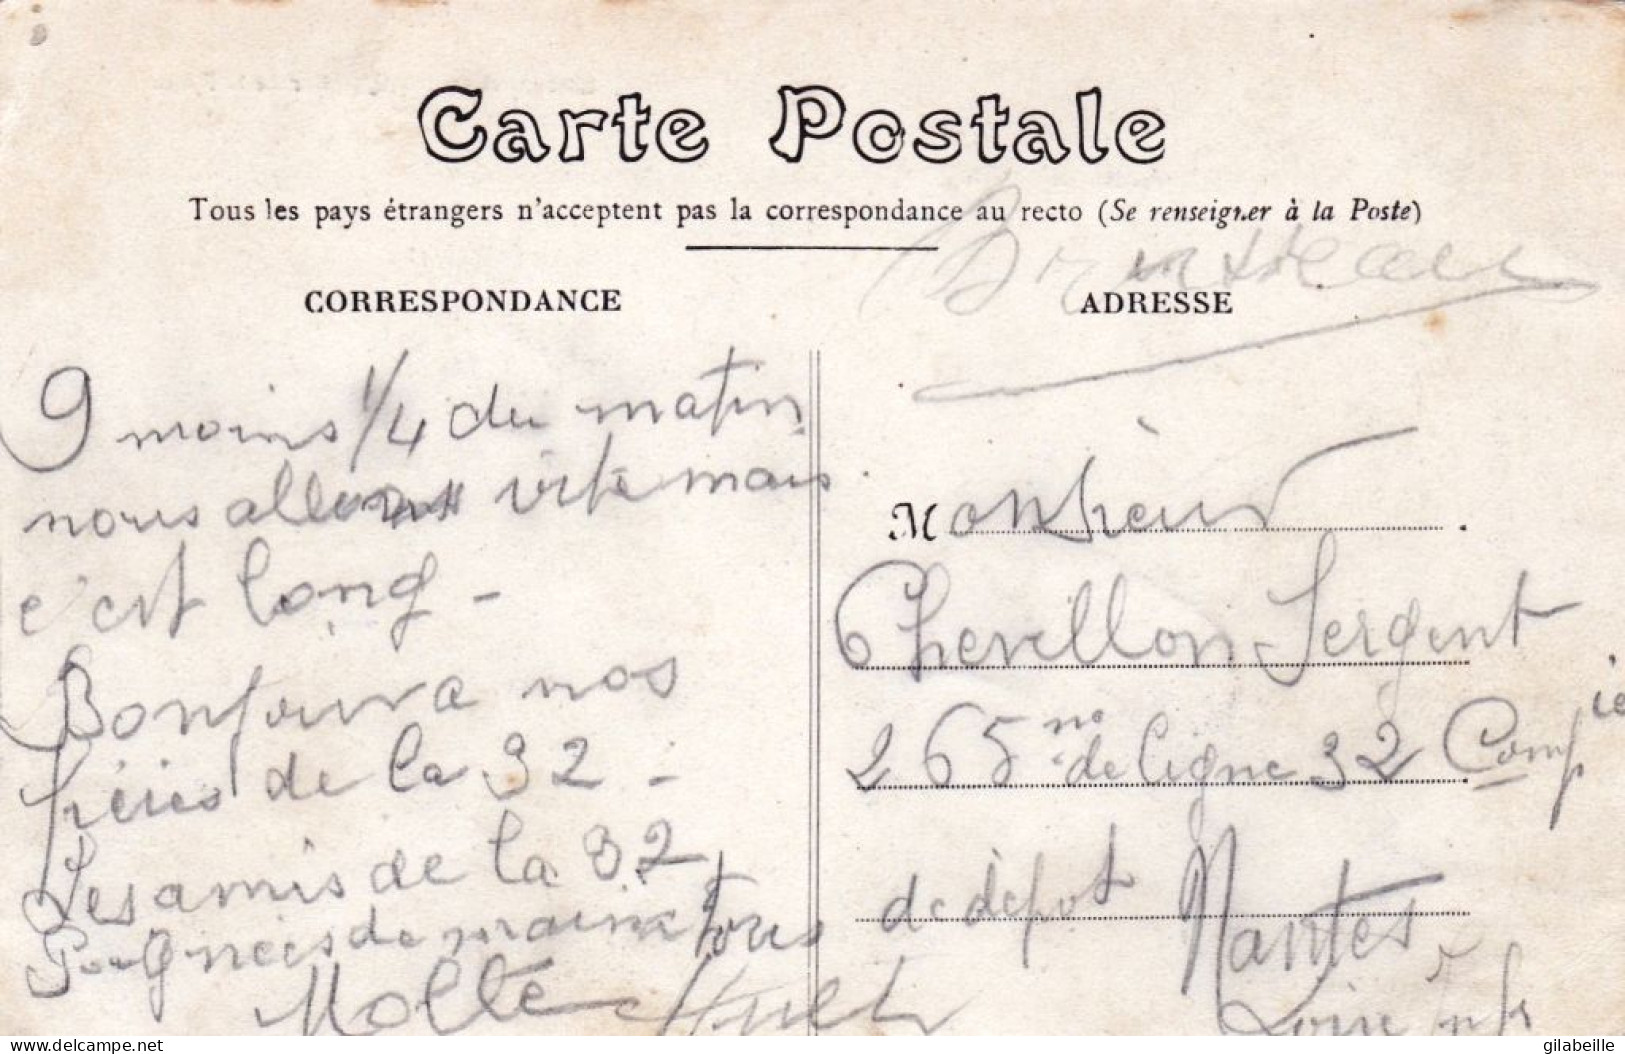 Carte Postale
Tous les pays étrangers n'acceptent pas la correspondance au recto (Se renseigner à la Poste)
CORRESPONDANCE
ADRESSE
9 moins 1/4 du matin
nous allons vite mais
c'est long -
Bonjour a nos
frères de la 32 -
Les amis de la 32
Poignées de mains a tous
Molte
Monsieur
Chevillon Sergent
265me de ligne 32 Compie
de dépot Nantes
Loire Infr
www.delcampe.net
gilabeille